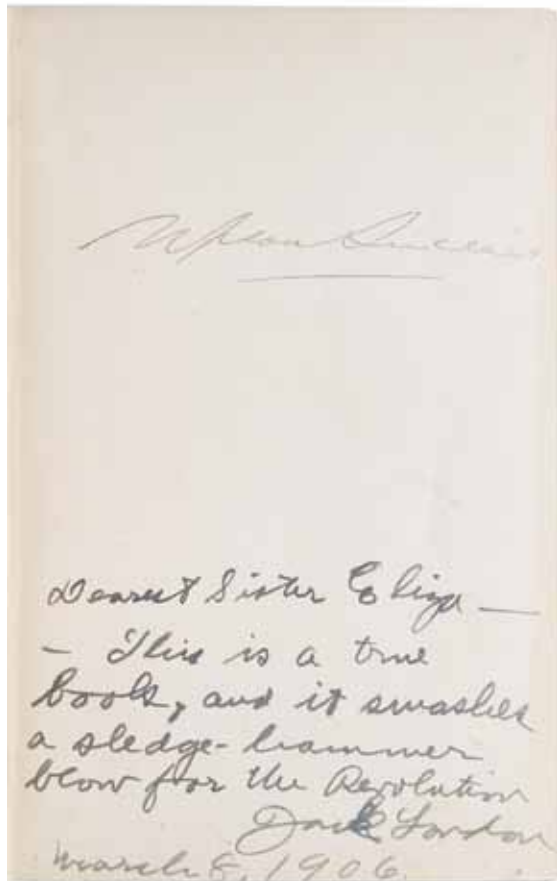 Upton Sinclair
Dearest Sister Eliza —
— This is a true
book, and it smashes
a sledge-hammer
blow for the Revolution
Jack London
March 8, 1906.